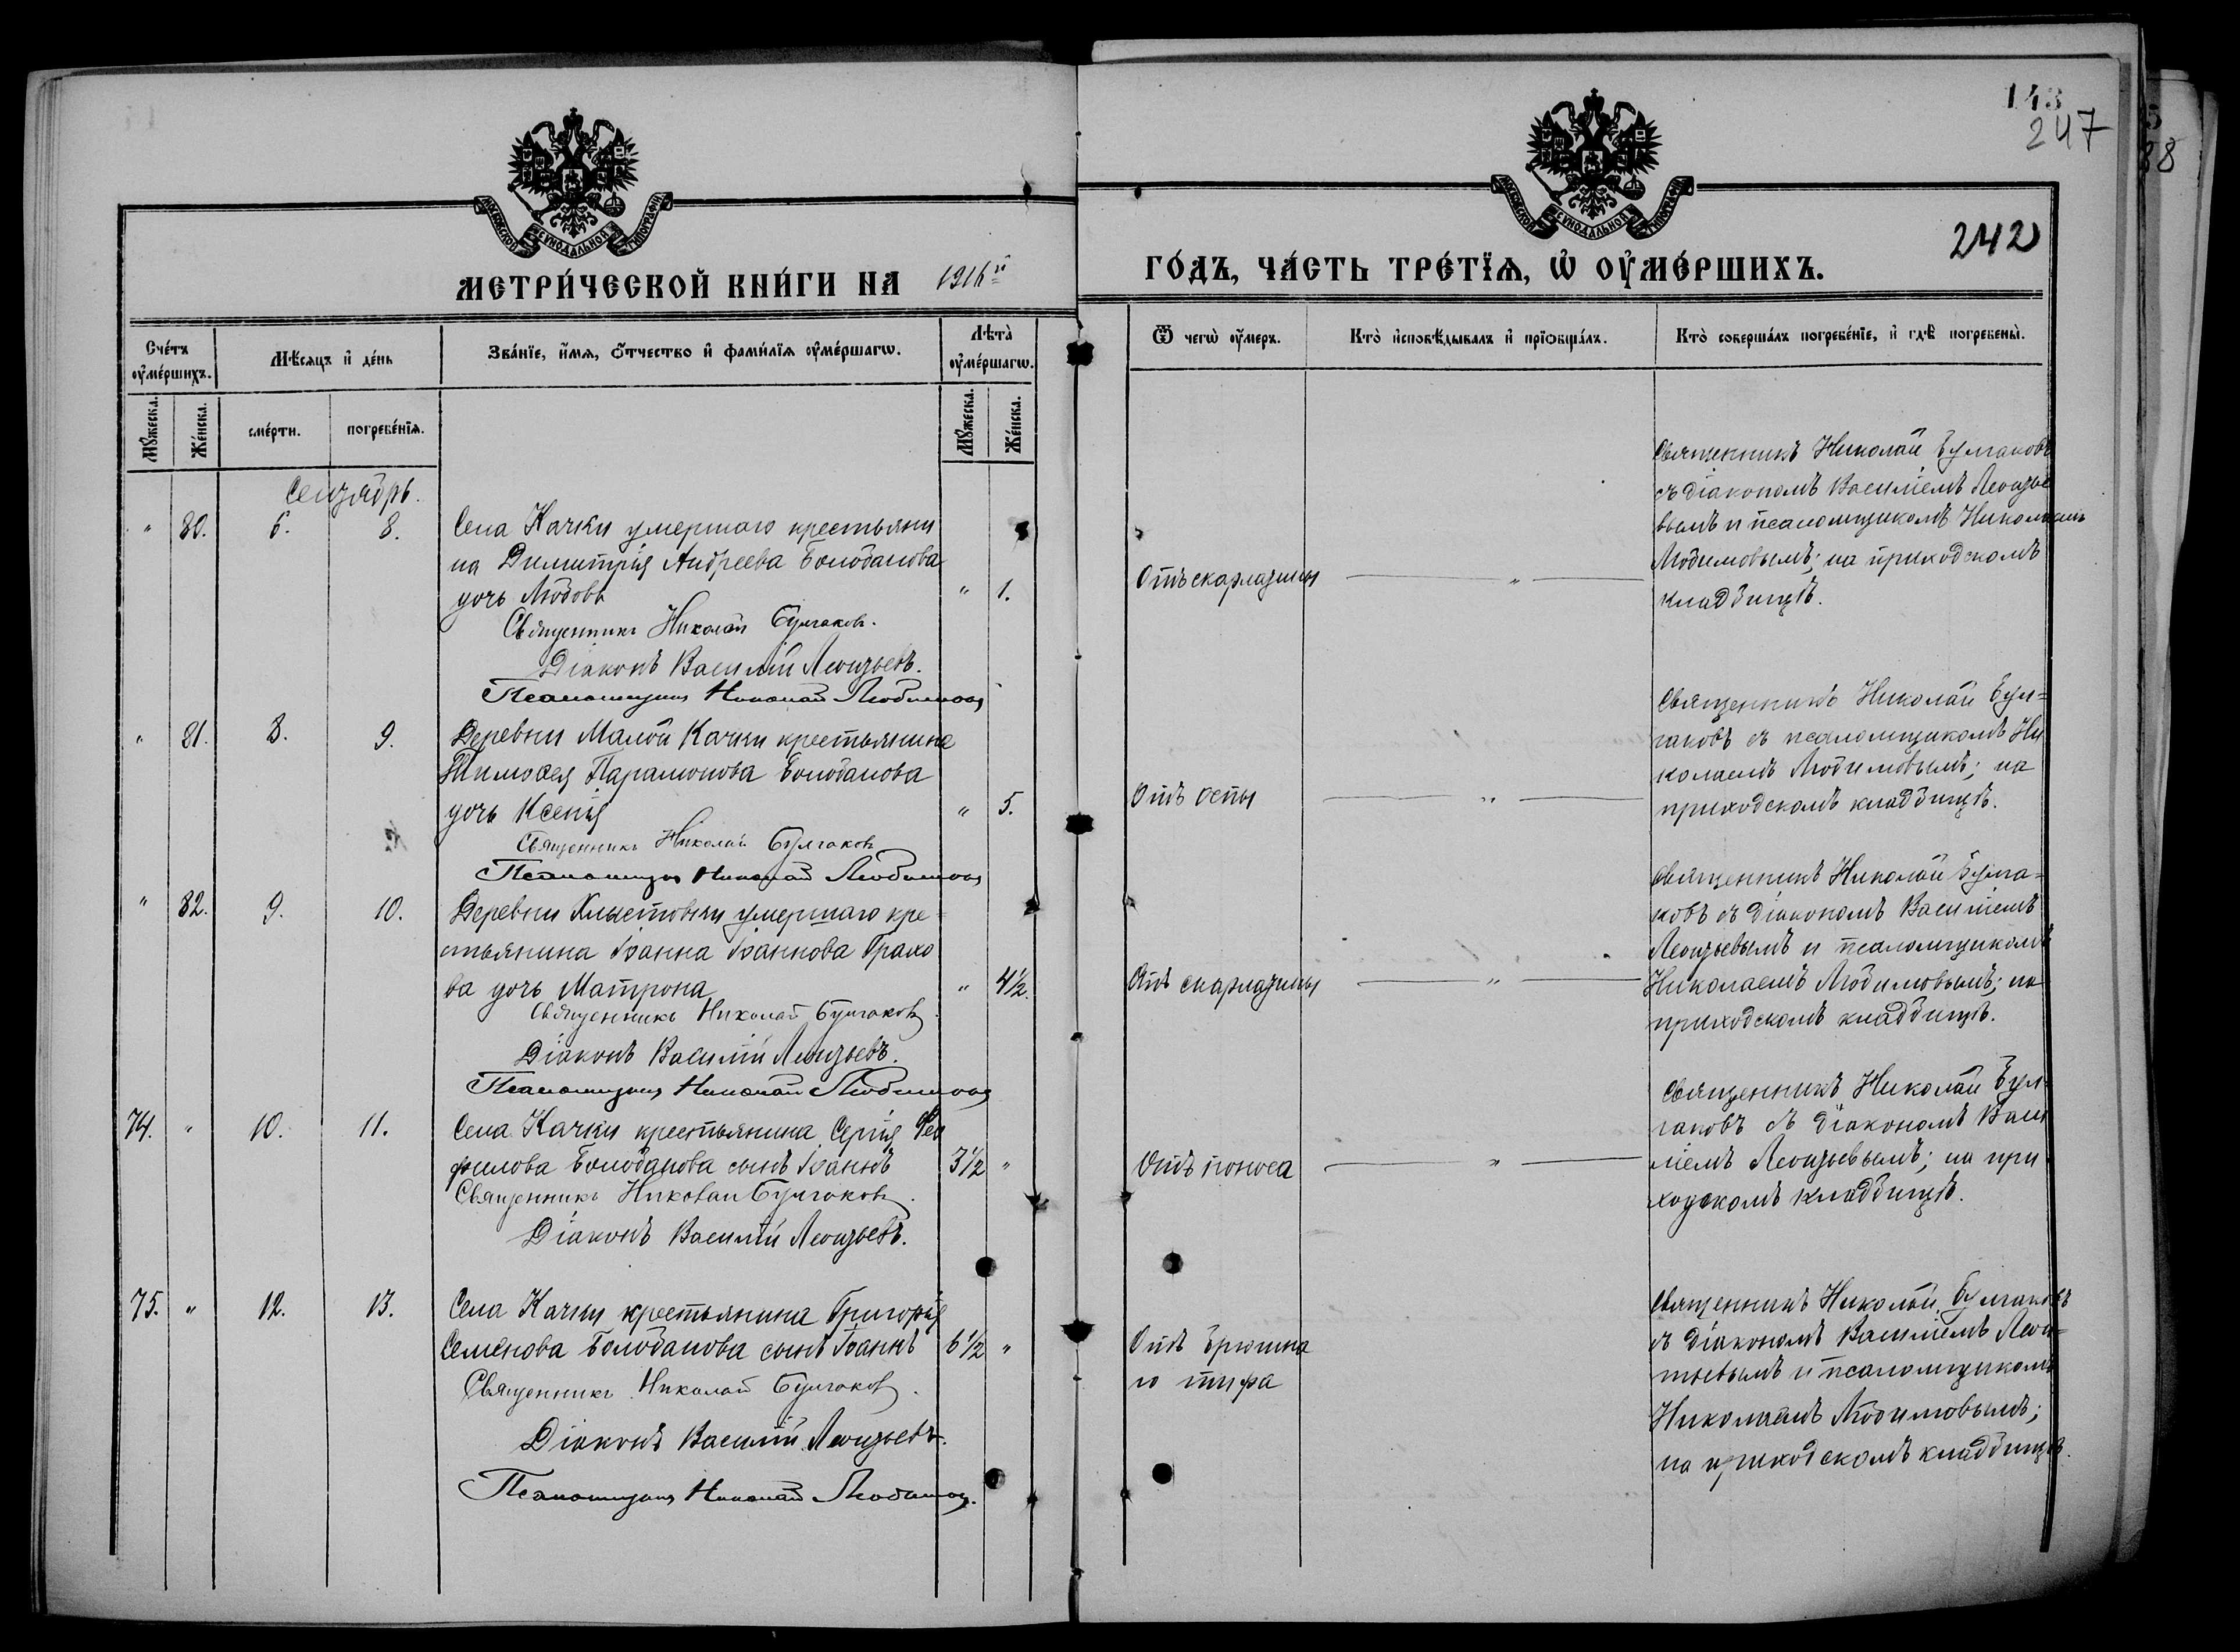 143
247
242
88
МОСКОВСКОЙ СѴНОДАЛЬНОЙ ТИПОГРАФІИ
МОСКОВСКОЙ СѴНОДАЛЬНОЙ ТИПОГРАФІИ
МЕТРИ́ЧЕСКОЙ КНИ́ГИ НА 1916й
ГО́ДЪ, ЧА́СТЬ ТРЕ́ТЇѦ, Ѡ҆ ОУ҆МЕ́РШИХЪ.
Сче́тъ оу҆ме́ршихъ.
Мѣ́сяцъ и҆ де́нь
Зва́нїе, и҆́мѧ, ѻ҆́тчество и҆ фами́лїѧ оу҆ме́ршагѡ.
Лѣта̀ оу҆ме́ршагѡ.
Ѿ чегѡ̀ оу҆́меръ.
Кто̀ и҆сповѣ́дывалъ и҆ прїѻбща́лъ.
Кто̀ соверша́лъ погребе́нїе, и҆ гдѣ̀ погребены̀.
Мꙋ́жеска.
Же́нска.
сме́рти.
погребе́нїѧ.
Мꙋ́жеска.
Же́нска.
Сентябрь.
" 80. 6. 8. Села Качки умершаго крестьяни
на Димитрія Андреева Болобанова
дочь Любовь " 1.
Священникъ Николай Булгаковъ.
Діаконъ Василій Леонтьевъ.
Псаломщикъ Николай Любимовъ
Отъ скарлатины "
Священникъ Николай Булгаковъ
съ діакономъ Василіемъ Леонтье
вымъ и псаломщикомъ Николаемъ
Любимовымъ; на приходскомъ
кладбищѣ.
" 81. 8. 9. Деревни Малой Качки крестьянина
Тимоѳея Парамонова Болобанова
дочь Ксенія " 5.
Священникъ Николай Булгаковъ
Псаломщикъ Николай Любимовъ
Отъ оспы "
Священникъ Николай Бул=
гаковъ съ псаломщикомъ Ни
колаемъ Любимовымъ; на
приходскомъ кладбищѣ.
" 82. 9. 10. Деревни Хлыстовки умершаго кре=
стьянина Іоанна Іоаннова Грахо
ва дочь Матрона " 4½.
Священникъ Николай Булгаковъ.
Діаконъ Василій Леонтьевъ.
Псаломщикъ Николай Любимовъ
Отъ скарлатины "
Священникъ Николай Булга=
ковъ съ діакономъ Василіемъ
Леонтьевымъ и псаломщикомъ
Николаемъ Любимовымъ; на
приходскомъ кладбищѣ.
74. " 10. 11. Села Качки крестьянина Сергія Фео
филова Болобанова сынъ Іоаннъ 3½ "
Священникъ Николай Булгаковъ.
Діаконъ Василій Леонтьевъ.
Отъ поноса "
Священникъ Николай Бул-
гаковъ съ діакономъ Васи
ліемъ Леонтьевымъ; на при
ходскомъ кладбищѣ.
75. " 12. 13. Села Качки крестьянина Григорія
Семенова Болобанова сынъ Іоаннъ 6½ "
Священникъ Николай Булгаковъ.
Діаконъ Василій Леонтьевъ.
Псаломщикъ Николай Любимовъ.
Отъ брюшна
го тифа
Священникъ Николай Булгаковъ
съ діакономъ Василіемъ Леон=
тьевымъ и псаломщикомъ
Николаемъ Любимовымъ;
на приходскомъ кладбищѣ.